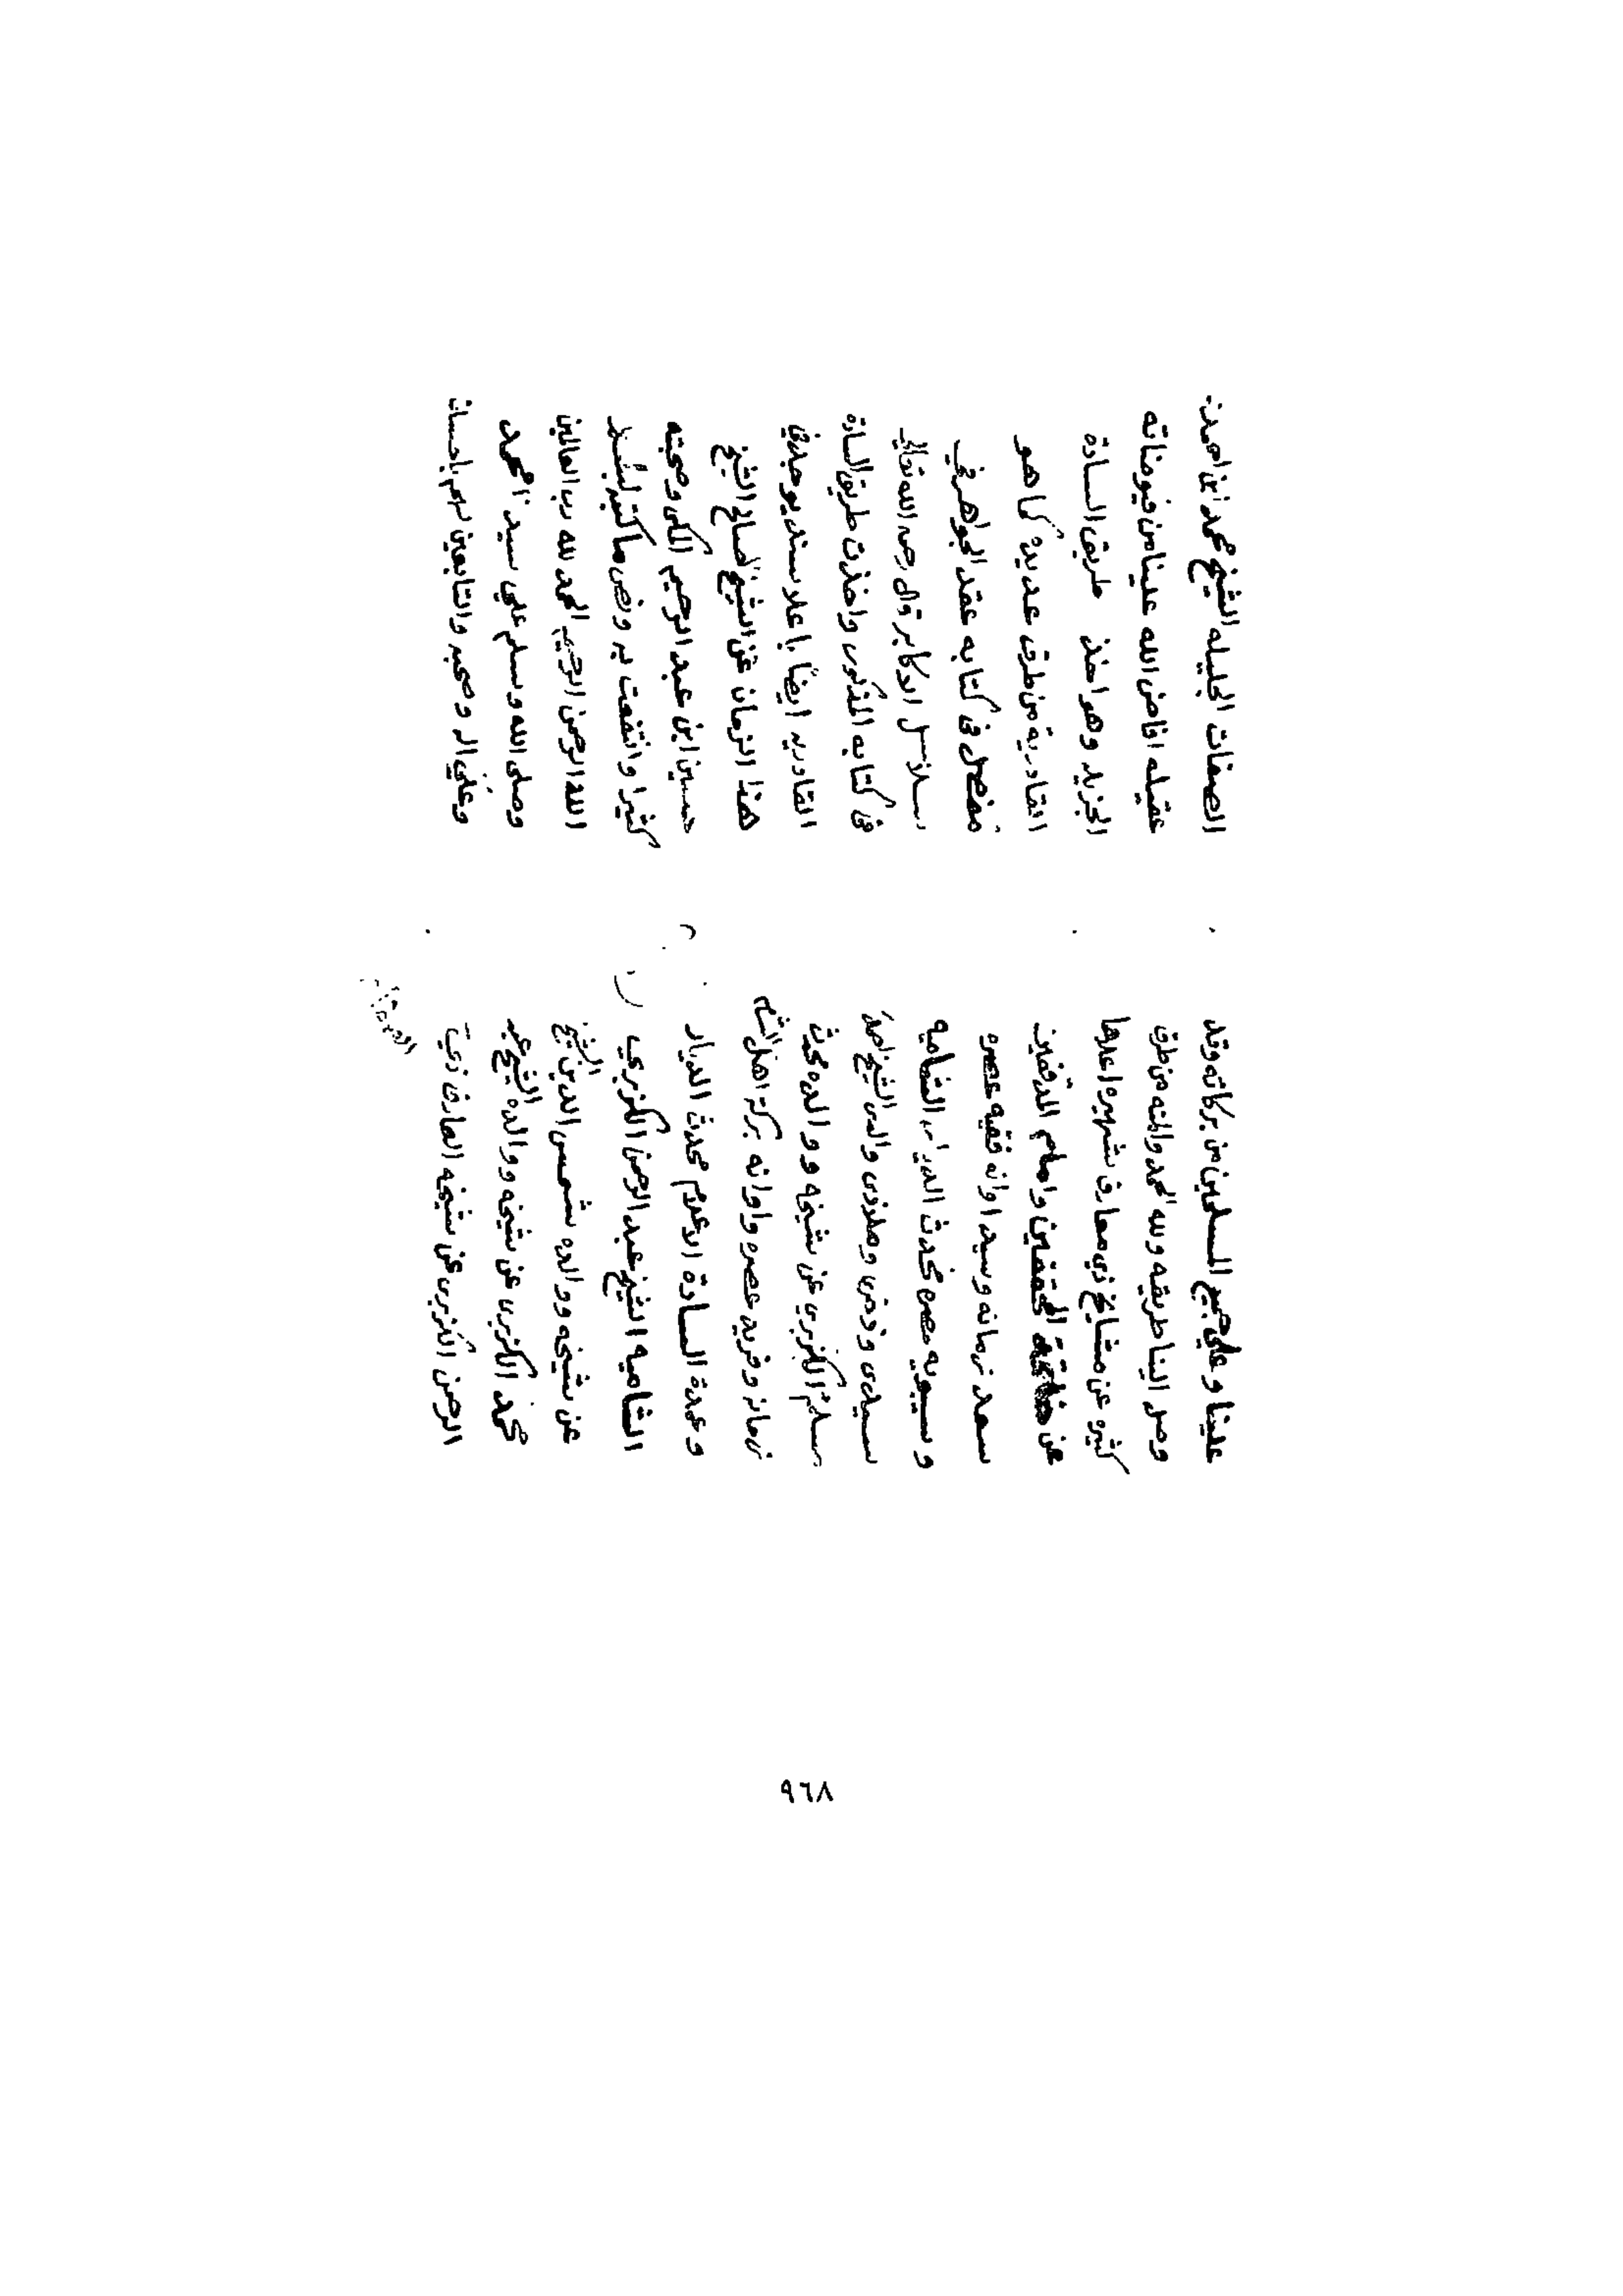 علينا وعلي جميع المسلمين من بركاته وقد
وصل الينا طريقه ولله الحمد والمنه من طرق
كثيره عن مشايخ ذي معارف شهيره اعلاها
عن خاتمة المحققين وامام المدققين
سعد زمانه وسيد اوانه فقيه عصره
وسيبويه مصره محدث الديار الشاميه
سيدي وذخري وملاذي والدي الشيخ احمد
مسلم الكزبري عن شيخه ووالده محدث
زمانه وفريد عصره واوانه بركة اهل الشام
وعمدة السادة الاعلام محدث الديار
الشاميه الشيخ عبد الرحمن الكزبري
عن شيخه ووالده شمس الدين الشيخ
محمد الكزبري عن شيخه ووالده الشيخ عبد
الرحمن الكزبري عن شيخه العارف ذي
الصفات
الصفات الجليله الشيخ محمد ابن احمد
عقيله افاض الله علينا من فيوضاته
الجزيله وهو اخذ طريق السادة
القادرية من طرق عديدة كما هو
مفصل في كتابه عقد الجواهر في
سلاسل الاكابر قال رحمه الله تعالي
في كتابه المذكور واخذت طريق السادة
القادريه ايضا باعلا سند يوجد في
هذا الزمان عن الشيخ الصالح الشيخ
حسين ابن عبد الرحيم المكي وصحبته
كثيرا وانتفعت به ونص ما كتبه لي بسم
الله الرحمن الرحيم الحمد لله رب العالمين
وصلى الله وسلم علي سيدنا محمد
وعلي اله وصحبه والتابعين لهم باحسان
٩٦٨